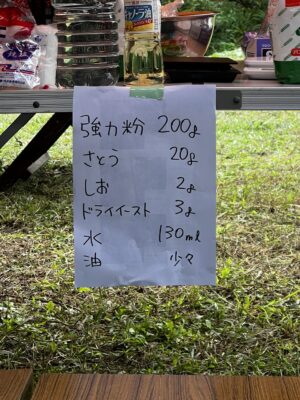 強力粉 200g
さとう 20g
しお 2g
ドライイースト 3g
水 130ml
油 少々